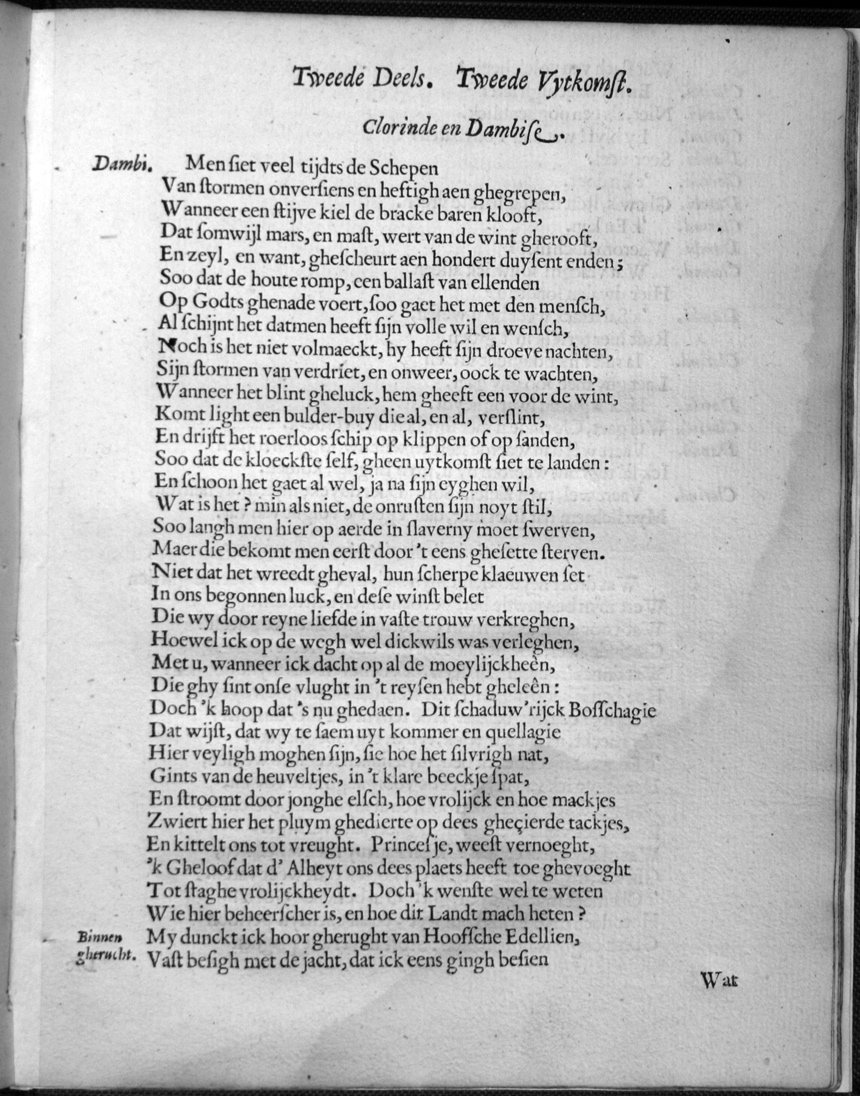 Tweede Deels. Tweede Vytkomſt.
Clorinde en Dambiſe.
Dambi. Men ſiet veel tijdts de Schepen
Van ſtormen onverſiens en heftigh aen ghegrepen,
Wanneer een ſtijve kiel de bracke baren klooft,
Dat ſomwijl mars, en maſt, wert van de wint gherooft,
En zeyl, en want, gheſcheurt aen hondert duyſent enden;
Soo dat de houte romp, een ballaſt van ellenden
Op Godts ghenade voert, ſoo gaet het met den menſch,
Al ſchijnt het datmen heeft ſijn volle wil en wenſch,
Noch is het niet volmaeckt, hy heeft ſijn droeve nachten,
Sijn ſtormen van verdriet, en onweer, oock te wachten,
Wanneer het blint gheluck, hem gheeft een voor de wint,
Komt light een bulder-buy die al, en al, verſlint,
En drijft het roerloos ſchip op klippen of op ſanden,
Soo dat de kloeckſte ſelf, gheen uytkomſt ſiet te landen:
En ſchoon het gaet al wel, ja na ſijn eyghen wil,
Wat is het? min als niet, de onruſten ſijn noyt ſtil,
Soo langh men hier op aerde in ſlaverny moet ſwerven,
Maer die bekomt men eerſt door 't eens gheſette ſterven.
Niet dat het wreedt gheval, hun ſcherpe klaeuwen ſet
In ons begonnen luck, en deſe winſt belet
Die wy door reyne liefde in vaſte trouw verkreghen,
Hoewel ick op de wegh wel dickwils was verleghen,
Met u, wanneer ick dacht op al de moeylijckheên,
Die ghy ſint onſe vlught in 't reyſen hebt gheleên:
Doch 'k hoop dat 's nu ghedaen. Dit ſchaduw'rijck Boſſchagie
Dat wijſt, dat wy te ſaem uyt kommer en quellagie
Hier veyligh moghen ſijn, ſie hoe het ſilvrigh nat,
Gints van de heuveltjes, in 't klare beeckje ſpat,
En ſtroomt door jonghe elſch, hoe vrolijck en hoe mackjes
Zwiert hier het pluym ghedierte op dees gheçierde tackjes,
En kittelt ons tot vreught. Princeſje, weeſt vernoeght,
'k Gheloof dat d' Alheyt ons dees plaets heeft toe ghevoeght
Tot ſtaghe vrolijckheydt. Doch 'k wenſte wel te weten
Wie hier beheerſcher is, en hoe dit Landt mach heten?
Binnen My dunckt ick hoor gherught van Hooffſche Edellien,
gherucht. Vaſt beſigh met de jacht, dat ick eens gingh beſien
Wat